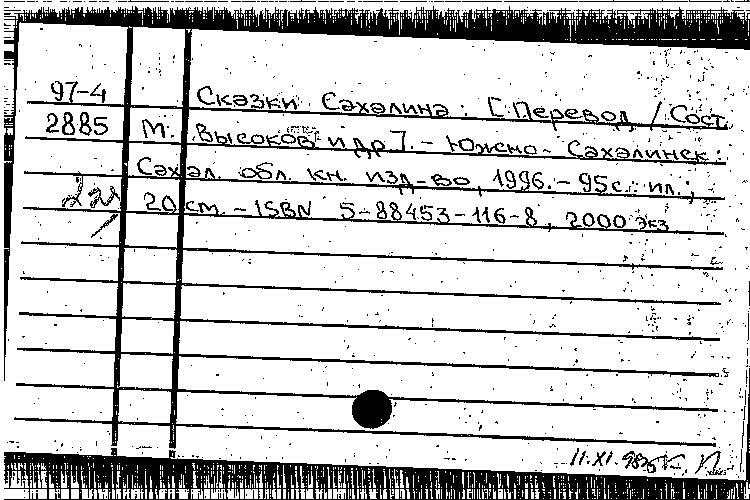 97-4 Сказки Сахалина: [Перевод / Сост.
2885 М. Высоков и др]. - Южно-Сахалинск:
Сахал. обл. кн. изд-во, 1996. - 95с.: ил.;
20 см. - ISBN 5-88453-116-8, 2000 экз
11.XI.98